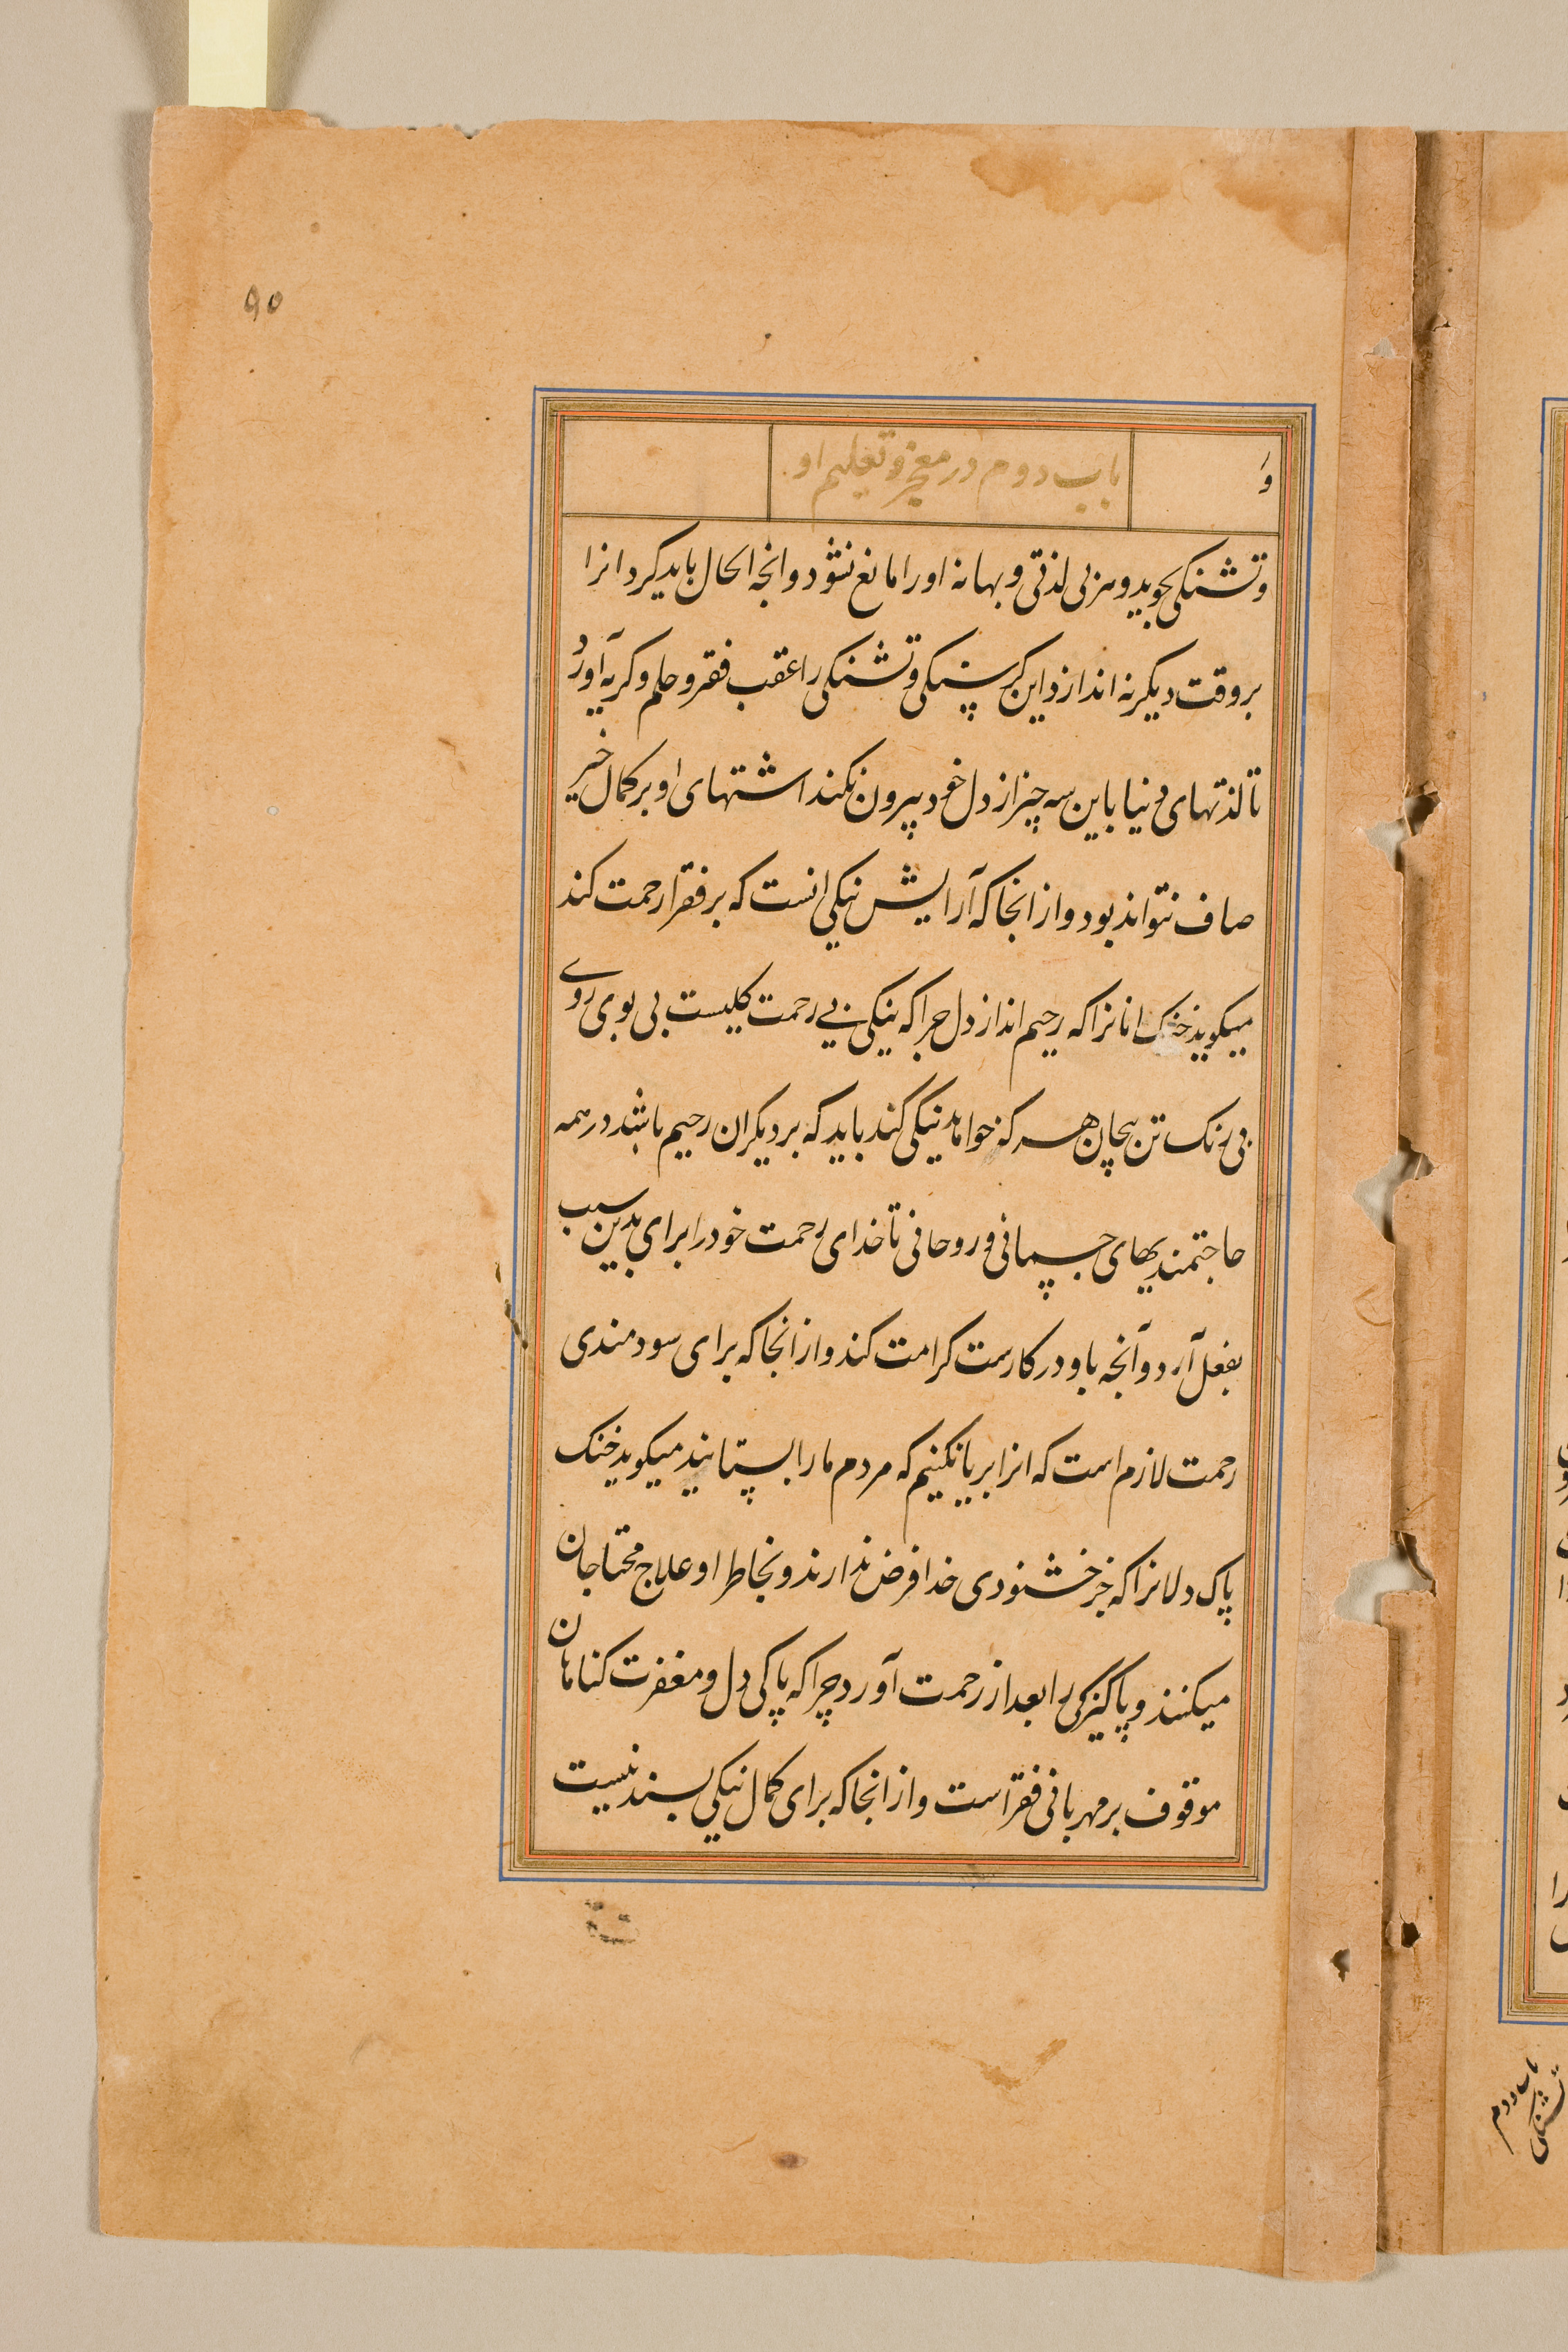 ۹۵
و
باب دوم در معجز و تعلیم او
و تشنکی بجوید و هر بی لذتی و بهانه او را مانع نشود و انجه الحال باید کرد انرا
بر وقت دیکر نه اندازد این کرسنکی و تشنکی را عقب فقر و حلم و کریه آورد
تا لذتهای دنیا باین سه چیز از دل خود بیرون نکند اشتهای او بر کمال خیر
صاف نتواند بود و از انجا که آرایش نیکی انست که بر فقرا رحمت کند
میکوید خنک انانرا که رحیم اند از دل چرا که نیکی بی رحمت کلیست بی بوی روے
بی رنک تن بیجان هر که خواهد نیکی کند باید که بر دیکران رحیم باشد در همه
حاجتمندیهای جسمانی و روحانی تا خدای رحمت خود را برای بدین سبب
بفعل آرد و آنجه باو در کارست کرامت کند و از انجا که برای سودمندی
رحمت لازم است که انرا بریا نکنیم که مردم ما را بستانید میکوید خنک
پاک دلانرا که جز خشنودی خدا فرض ندارند و بخاطر او علاج محتاجان
میکنند و پاکیزکی را بعد از رحمت آورد چرا که پاکی دل و مغفرت کناهان
موقوف بر مهربانی فقراست و از انجا که برای کمال نیکی بسند نیست
باب دوم
تشنکی